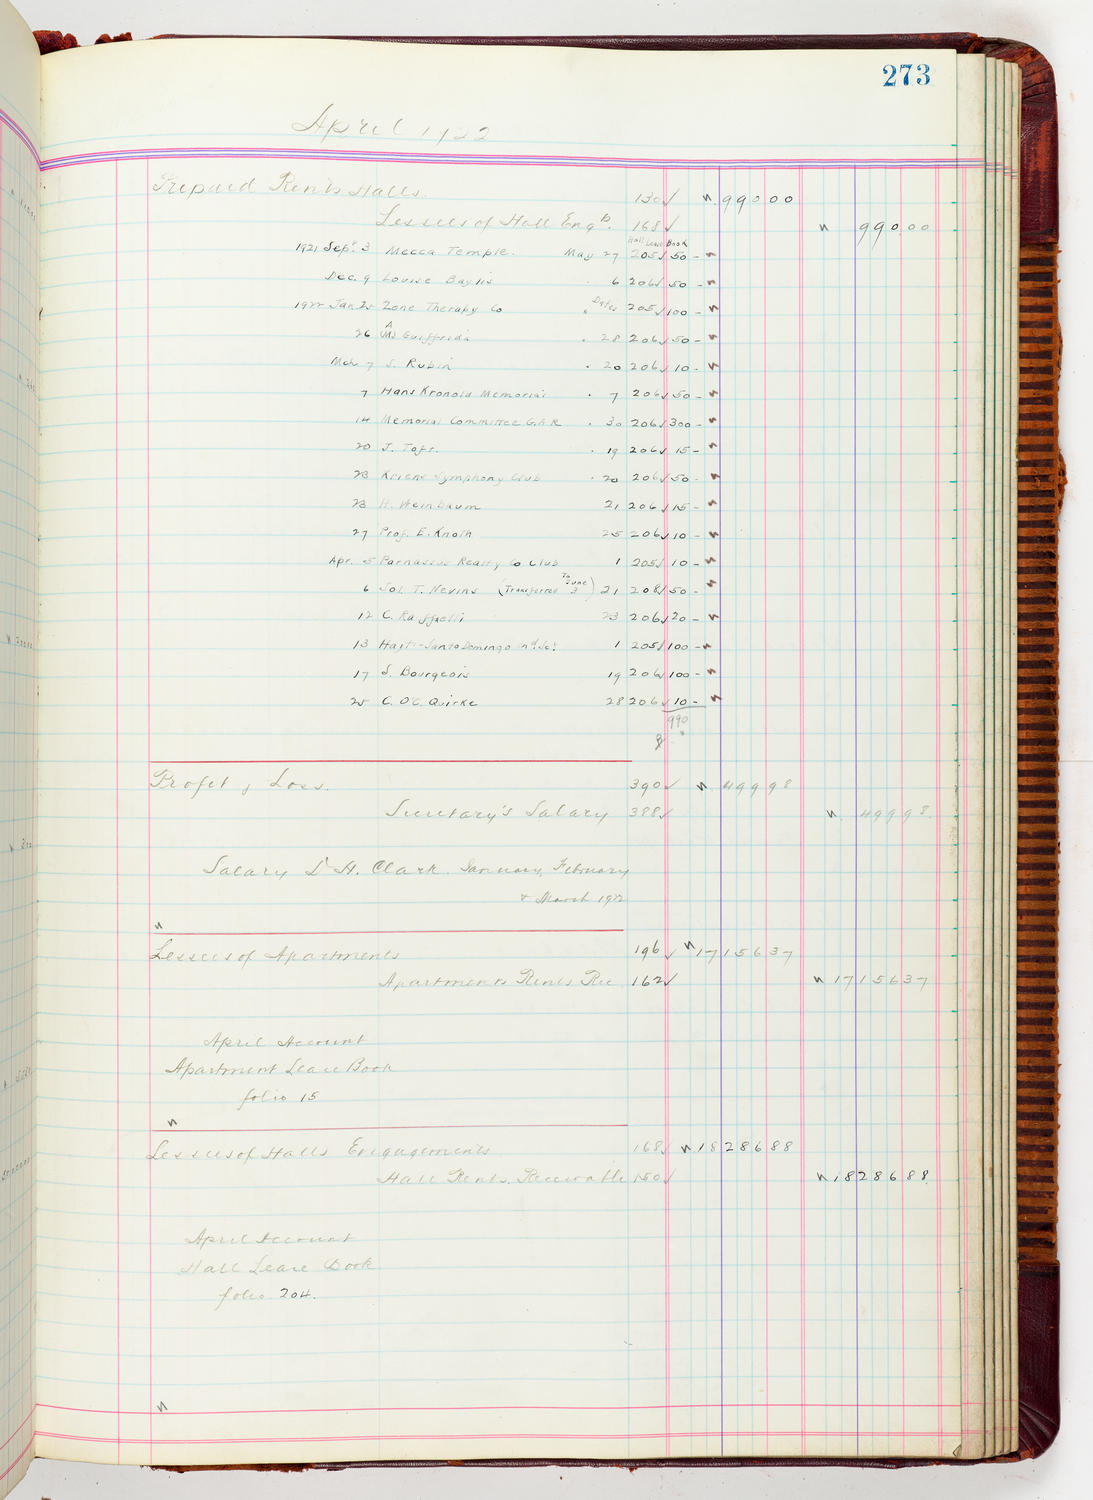 273
April 1922
Prepaid Rents Halls. 130 990 00
Lessees of Hall Eng. 168 990 00
Hall Lease Book
1921 Sept. 3 Mecca Temple. May 27 205 50 -
Dec. 9 Louise Baylis 6 206 50 -
1922 Jan 25 Zone Therapy Co Dates 205 100 -
26 28 206 50 -
Mch 7 S. Rubin 20 206 10 -
7 Hans Kronold Memorial 7 206 50 -
14 Memorial Committee G.A.R 30 206 300 -
20 J. Toft. 19 206 15 -
23 Kriens Symphony Club 20 206 50 -
23 H. Weinbaum 21 206 15 -
27 Prof. E. Knoth 25 206 10 -
Apr. 5 Parnassus Realty Co Club 1 205 10 -
6 Sol. T. Nevins (Transferred To June 3) 21 208 50 -
12 C. Raffaelli 23 206 20 -
13 Haiti-Santo Domingo 1 205 100 -
17 S. Bourgeois 19 206 100 -
25 C. O'C. Quirke 28 206 10 -
990
Profit & Loss. 390 499 98
Secretary's Salary 388 499 98
Salary L H. Clark. January, February
& March 1922
Lessees of Apartments 196 17156 37
Apartments Rents Rec 162 17156 37
April Account
Apartment Lease Book
folio 15
Lessees of Halls Engagements 168 18286 88
Hall Rents. Receivable 150 18286 88
April Account
Hall Lease Book
folio 204.